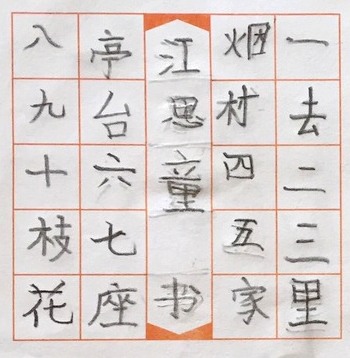 一去二三里
烟村四五家
江思童书
亭台六七座
八九十枝花